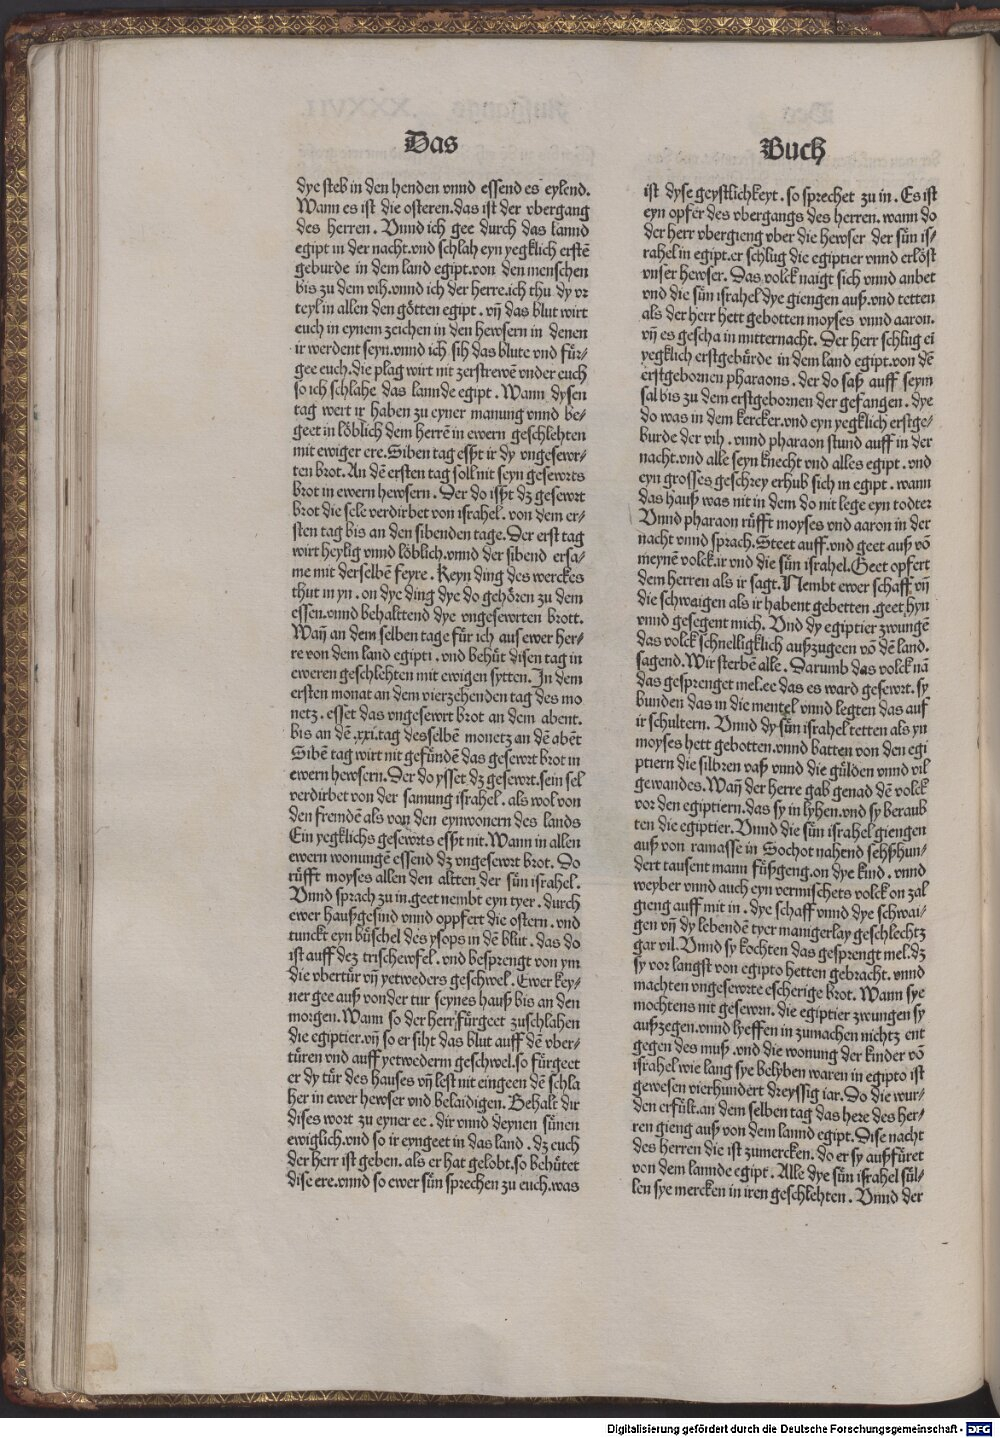 Das
dye steb in den henden vnnd essend es eylend.
Wann es ist die osteren.das ist der vbergang
des herren. Vnnd ich gee durch das lannd
egipt in der nacht.vnd schlah eyn yegklich erstē
geburde in dem land egipt.von den menschen
bis zu dem vih.vnnd ich der herre.ich thu dy vr
teyl in allen den götten egipt. vn̄ das blut wirt
euch in eynem zeichen in den hewsern in denen
ir werdent seyn.vnnd ich sih das blute vnd für-
gee euch.die plag wirt nit zerstrewē vnder euch
so ich schlahe das lannde egipt. Wann dysen
tag wert ir haben zu eyner manung vnnd be-
geet in löblich dem herrē in ewern geschlehten
mit ewiger ere.Siben tag esst ir dy vngesewr-
ten brot.An dē ersten tag soll nit seyn gesewrts
brot in ewern hewsern. Der do isst dz gesewrt
brot die sele verdirbet von israhel. von dem er-
sten tag bis an den sibenden tage.Der erst tag
wirt heylig vnnd löblich.vnnd der sibend ersa-
me mit derselbē feyre. Keyn ding des werckes
thut in yn. on dye ding dye do gehören zu dem
essen.vnnd behalttend dye vngesewrten brott.
Wan̄ an dem selben tage für ich aus ewer her-
re von dem land egipti. vnd behüt disen tag in
eweren geschlehten mit ewigen sytten.In dem
ersten monat an dem vierzehenden tag des mo
netz. esset das vngesewrt brot an dem abent.
bis an dē .xxi.tag desselbē monetz an dē abēt
Sibē tag wirt nit gefündē das gesewrt brot in
ewern hewsern.Der do ysset dz gesewrt.sein sel
verdirbet von der samung israhel. als wol von
den fremdē als von den eynwonern des lands
Ein yegklichs gesewrts esst nit.Wann in allen
ewern wonungē essend dz vngesewrt brot. Do
rüfft moyses allen den altten der sün israhel.
Vnnd sprach zu in.geet nembt eyn tyer. durch
ewer haußgesind vnnd oppfert die ostern. vnd
tunckt eyn büschel des ysops in dē blut. das do
ist auff dez trischewfel. vnd besprengt von ym
die vbertür vn̄ yetweders geschwel. Ewer key-
ner gee auß von der tur seynes hauß bis an den
morgen.Wann so der herr fürgeet zuschlahen
die egiptier.vn̄ so er siht das blut auff dē vber-
türen vnd auff yetwederm geschwel.so fürgeet
er dy tür des hauses vn̄ lest nit eingeen dē schla
her in ewer hewser vnd belaidigen. Behalt dir
dises wort zu eyner ee. dir vnnd deynen sünen
ewiglich.vnd so ir eyngeet in das land. dz euch
der herr ist geben. als er hat gelobt.so behütet
dise ere.vnnd so ewer sün sprechen zu euch.was
Buch
ist dyse geystlichkeyt. so sprechet zu in. Es ist
eyn opfer des vbergangs des herren. wann do
der herr vbergieng vber die hewser der sün is-
rahel in egipt.er schlug die egiptier vnnd erlöst
vnser hewser. Das volck naigt sich vnnd anbet
vnd die sün israhel dye giengen auß.vnd tetten
als der herr hett gebotten moyses vnnd aaron.
vn̄ es gescha in mitternacht. Der herr schlug ei
yegklich erstgebürde in dem land egipt.von dē
erstgebornen pharaons. der do saß auff seym
sal bis zu dem erstgebornen der gefangen. dye
do was in dem kercker.vnd eyn yegklich erstge-
burde der vih. vnnd pharaon stund auff in der
nacht.vnd alle seyn knecht vnd alles egipt. vnd
eyn grosses geschrey erhub sich in egipt. wann
das hauß was nit in dem do nit lege eyn todter
Vnnd pharaon rüfft moyses vnd aaron in der
nacht vnnd sprach.Steet auff.vnd geet auß vō
meynē volck.ir vnd die sün israhel.Geet opfert
dem herren als ir sagt.Nembt ewer schaff vn̄
die schwaigen als ir habent gebetten.geet hyn
vnnd gesegent mich. Vnd dy egiptier zwungē
das volck schnelligklich außzugeen vō dē land.
sagend.Wir sterbē alle. Darumb das volck nā
das gesprenget mel.ee das es ward gesewrt.sy
bunden das in die mentel vnnd legten das auf
ir schultern. Vnnd dy sün israhel tetten als yn
moyses hett gebotten.vnnd batten von den egi
ptiern die silbren vaß vnnd die gülden vnnd vil
gewandes.Wan̄ der herre gab genad dē volck
vor den egiptiern.das sy in lyhen.vnd sy beraub
ten die egiptier.Vnnd die sün israhel giengen
auß von ramasse in Sochot nahend sehßhun-
dert tausent mann füßgeng.on dye kind. vnnd
weyber vnnd auch eyn vermischets volck on zal
gieng auff mit in. dye schaff vnnd dye schwai-
gen vn̄ dy lebendē tyer manigerlay geschlechtz
gar vil.Vnnd sy kochten das gesprengt mel.dz
sy vor langst von egipto hetten gebracht. vnnd
machten vngesewrte escherige brot. Wann sye
mochtens nit gesewrn. die egiptier zwungen sy
außzegen.vnnd lyessen in zumachen nichtz ent
gegen des muß .vnd die wonung der kinder vō
israhel wie lang sye belyben waren in egipto ist
gewesen vierhundert dreyssig iar. Do die wur-
den erfült.an dem selben tag das here des her-
ren gieng auß von dem lannd egipt.Dise nacht
des herren die ist zumercken. do er sy außfüret
von dem lannde egipt. Alle dye sün israhel sül-
len sye mercken in iren geschlehten. Vnnd der
Digitalisierung gefördert durch die Deutsche Forschungsgemeinschaft - DFG